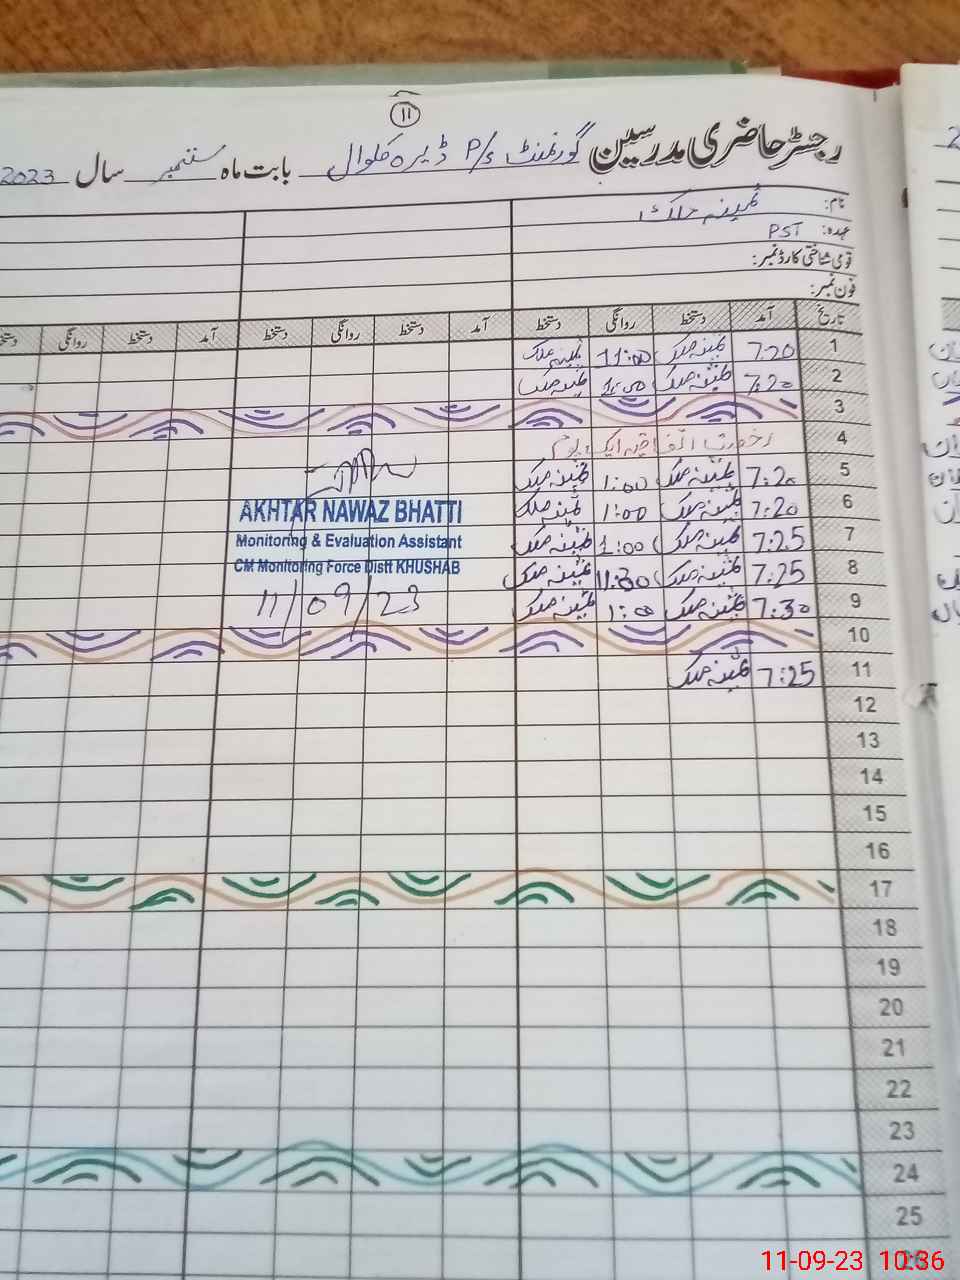 11
رجسٹر حاضری مدرسین گورنمنٹ P/S ڈیرہ ملوال بابت ماہ ستمبر سال 2023
نام: ثمینہ ملک
عہدہ: PST
قومی شناختی کارڈ نمبر:
فون نمبر:
تاریخ آمد دستخط روانگی دستخط آمد دستخط روانگی دستخط آمد دستخط روانگی دستخط
1 7:20 ثمینہ ملک 11:00 ثمینہ ملک
2 7:20 ثمینہ ملک 1:00 ثمینہ ملک
3
4 رخصت اتفاقیہ ایک یوم
5 7:20 ثمینہ ملک 1:00 ثمینہ ملک
6 7:20 ثمینہ ملک 1:00 ثمینہ ملک
7 7:25 ثمینہ ملک 1:00 ثمینہ ملک
8 7:25 ثمینہ ملک 11:30 ثمینہ ملک
9 7:30 ثمینہ ملک 1:00 ثمینہ ملک
10
11 7:25 ثمینہ ملک
12
13
14
15
16
17
18
19
20
21
22
23
24
25
26
AKHTAR NAWAZ BHATTI
Monitoring & Evaluation Assistant
CM Monitoring Force Distt KHUSHAB
11/09/23
11-09-23 10:36